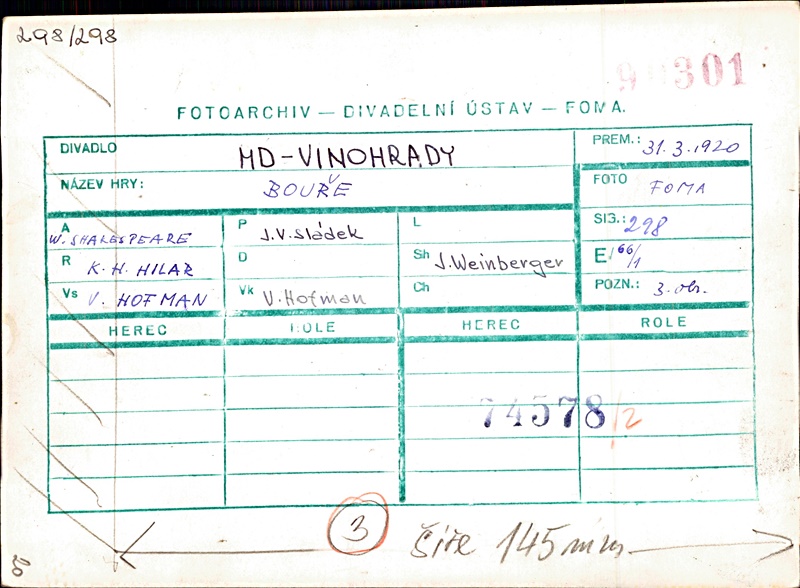 298/298
90301
FOTOARCHIV — DIVADELNÍ ÚSTAV — FOMA.
DIVADLO MD-VINOHRADY
PREM.: 31.3.1920
NÁZEV HRY: BOUŘE
FOTO FOMA
A W. SHALESPEARE
P J.V. Sládek
L
SIG.: 298
R K. H. HILAR
D
Sh J. Weinberger
E 66/1
Vs V. HOFMAN
Vk V. Hofman
Ch
POZN.: 3. obr.
HEREC ROLE HEREC ROLE
74578/2
3 šíře 145 mm
20